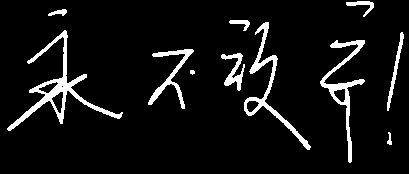 永不放弃!